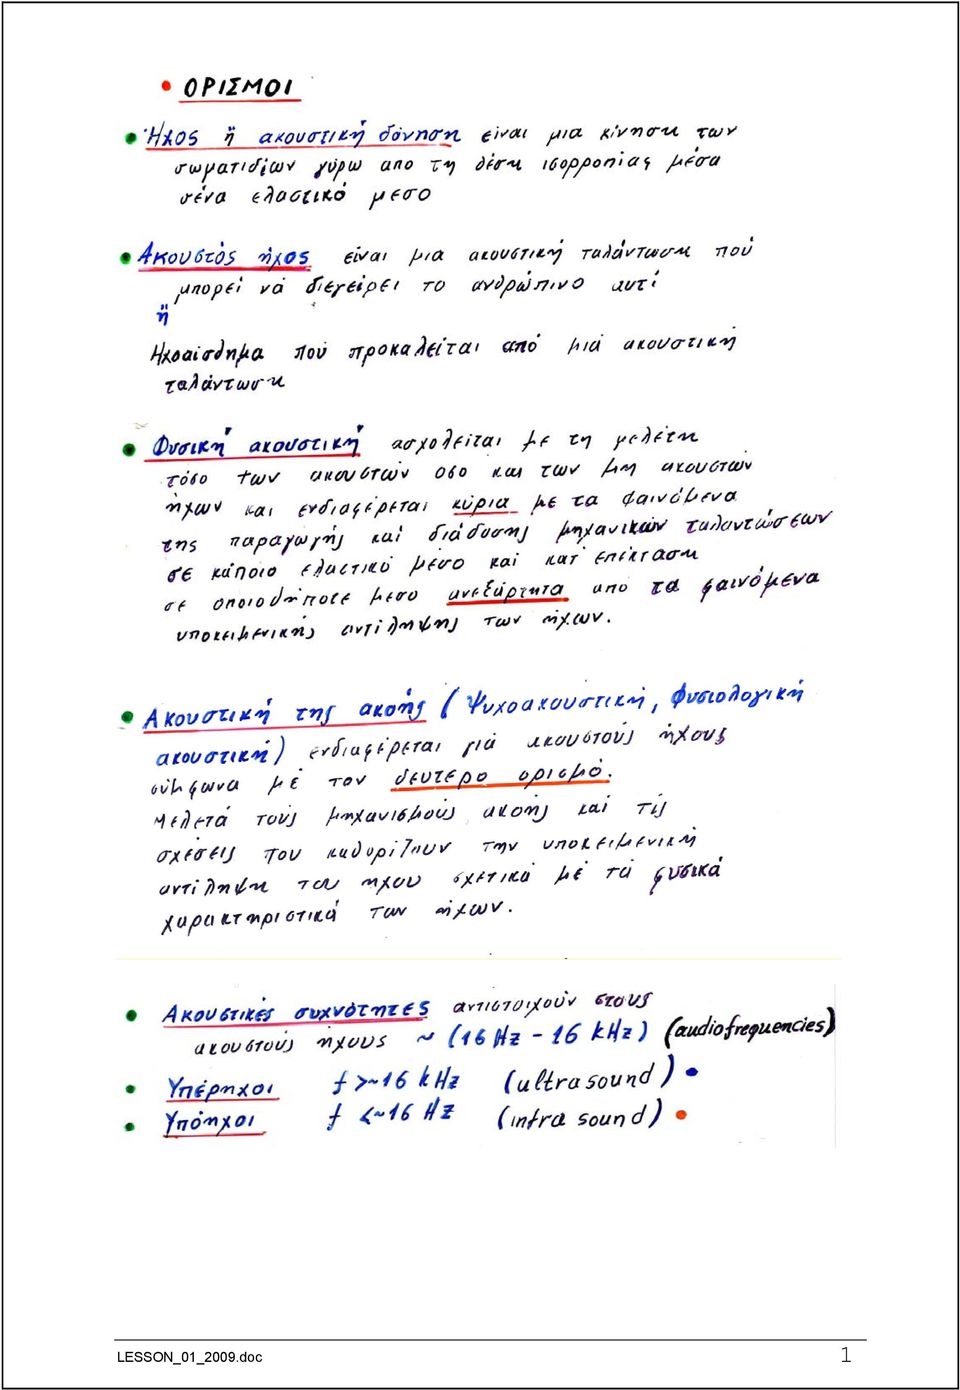 • ΟΡΙΣΜΟΙ
• Ήχος ή ακουστική δόνηση είναι μια κίνηση των
σωματιδίων γύρω απο τη θέση ισορροπίας μέσα
σ'ένα ελαστικό μεσο
• Ακουστός ήχος είναι μια ακουστική ταλάντωση πού
μπορεί νά διεγείρει το ανθρώπινο αυτί
ή
Ηχοαίσθημα πού προκαλείται από μιά ακουστική
ταλάντωση
• Φυσική ακουστική ασχολείται με τη μελέτη
τόσο των ακουστών οσο και των μη ακουστών
ήχων και ενδιαφέρεται κύρια με τα φαινόμενα
της παραγωγής καί διάδοσης μηχανικών ταλαντώσεων
σε κάποιο ελαστικό μέσο καί κατ' επέκταση
σε οποιοδήποτε μεσο ανεξάρτητα απο τα φαινόμενα
υποκειμενικής αντίληψης των ήχων.
• Ακουστική της ακοής (Ψυχοακουστική, φυσιολογική
ακουστική) ενδιαφέρεται γιά ακουστούς ήχους
σύμφωνα μέ τον δευτερο ορισμό.
Μελετά τούς μηχανισμούς ακοής καί τίς
σχέσεις που καθορίζουν την υποκειμενική
αντίληψη του ηχου σχετικά μέ τά φυσικά
χαρακτηριστικά των ήχων.
• Ακουστικές συχνότητες αντιστοιχούν στους
ακουστούς ήχους ~ (16 Hz - 16 kHz) (audiofrequencies)
• Υπέρηχοι f >~16 kHz (ultra sound) •
• Υπόηχοι f <~16 Hz (infra sound) •
LESSON_01_2009.doc 1